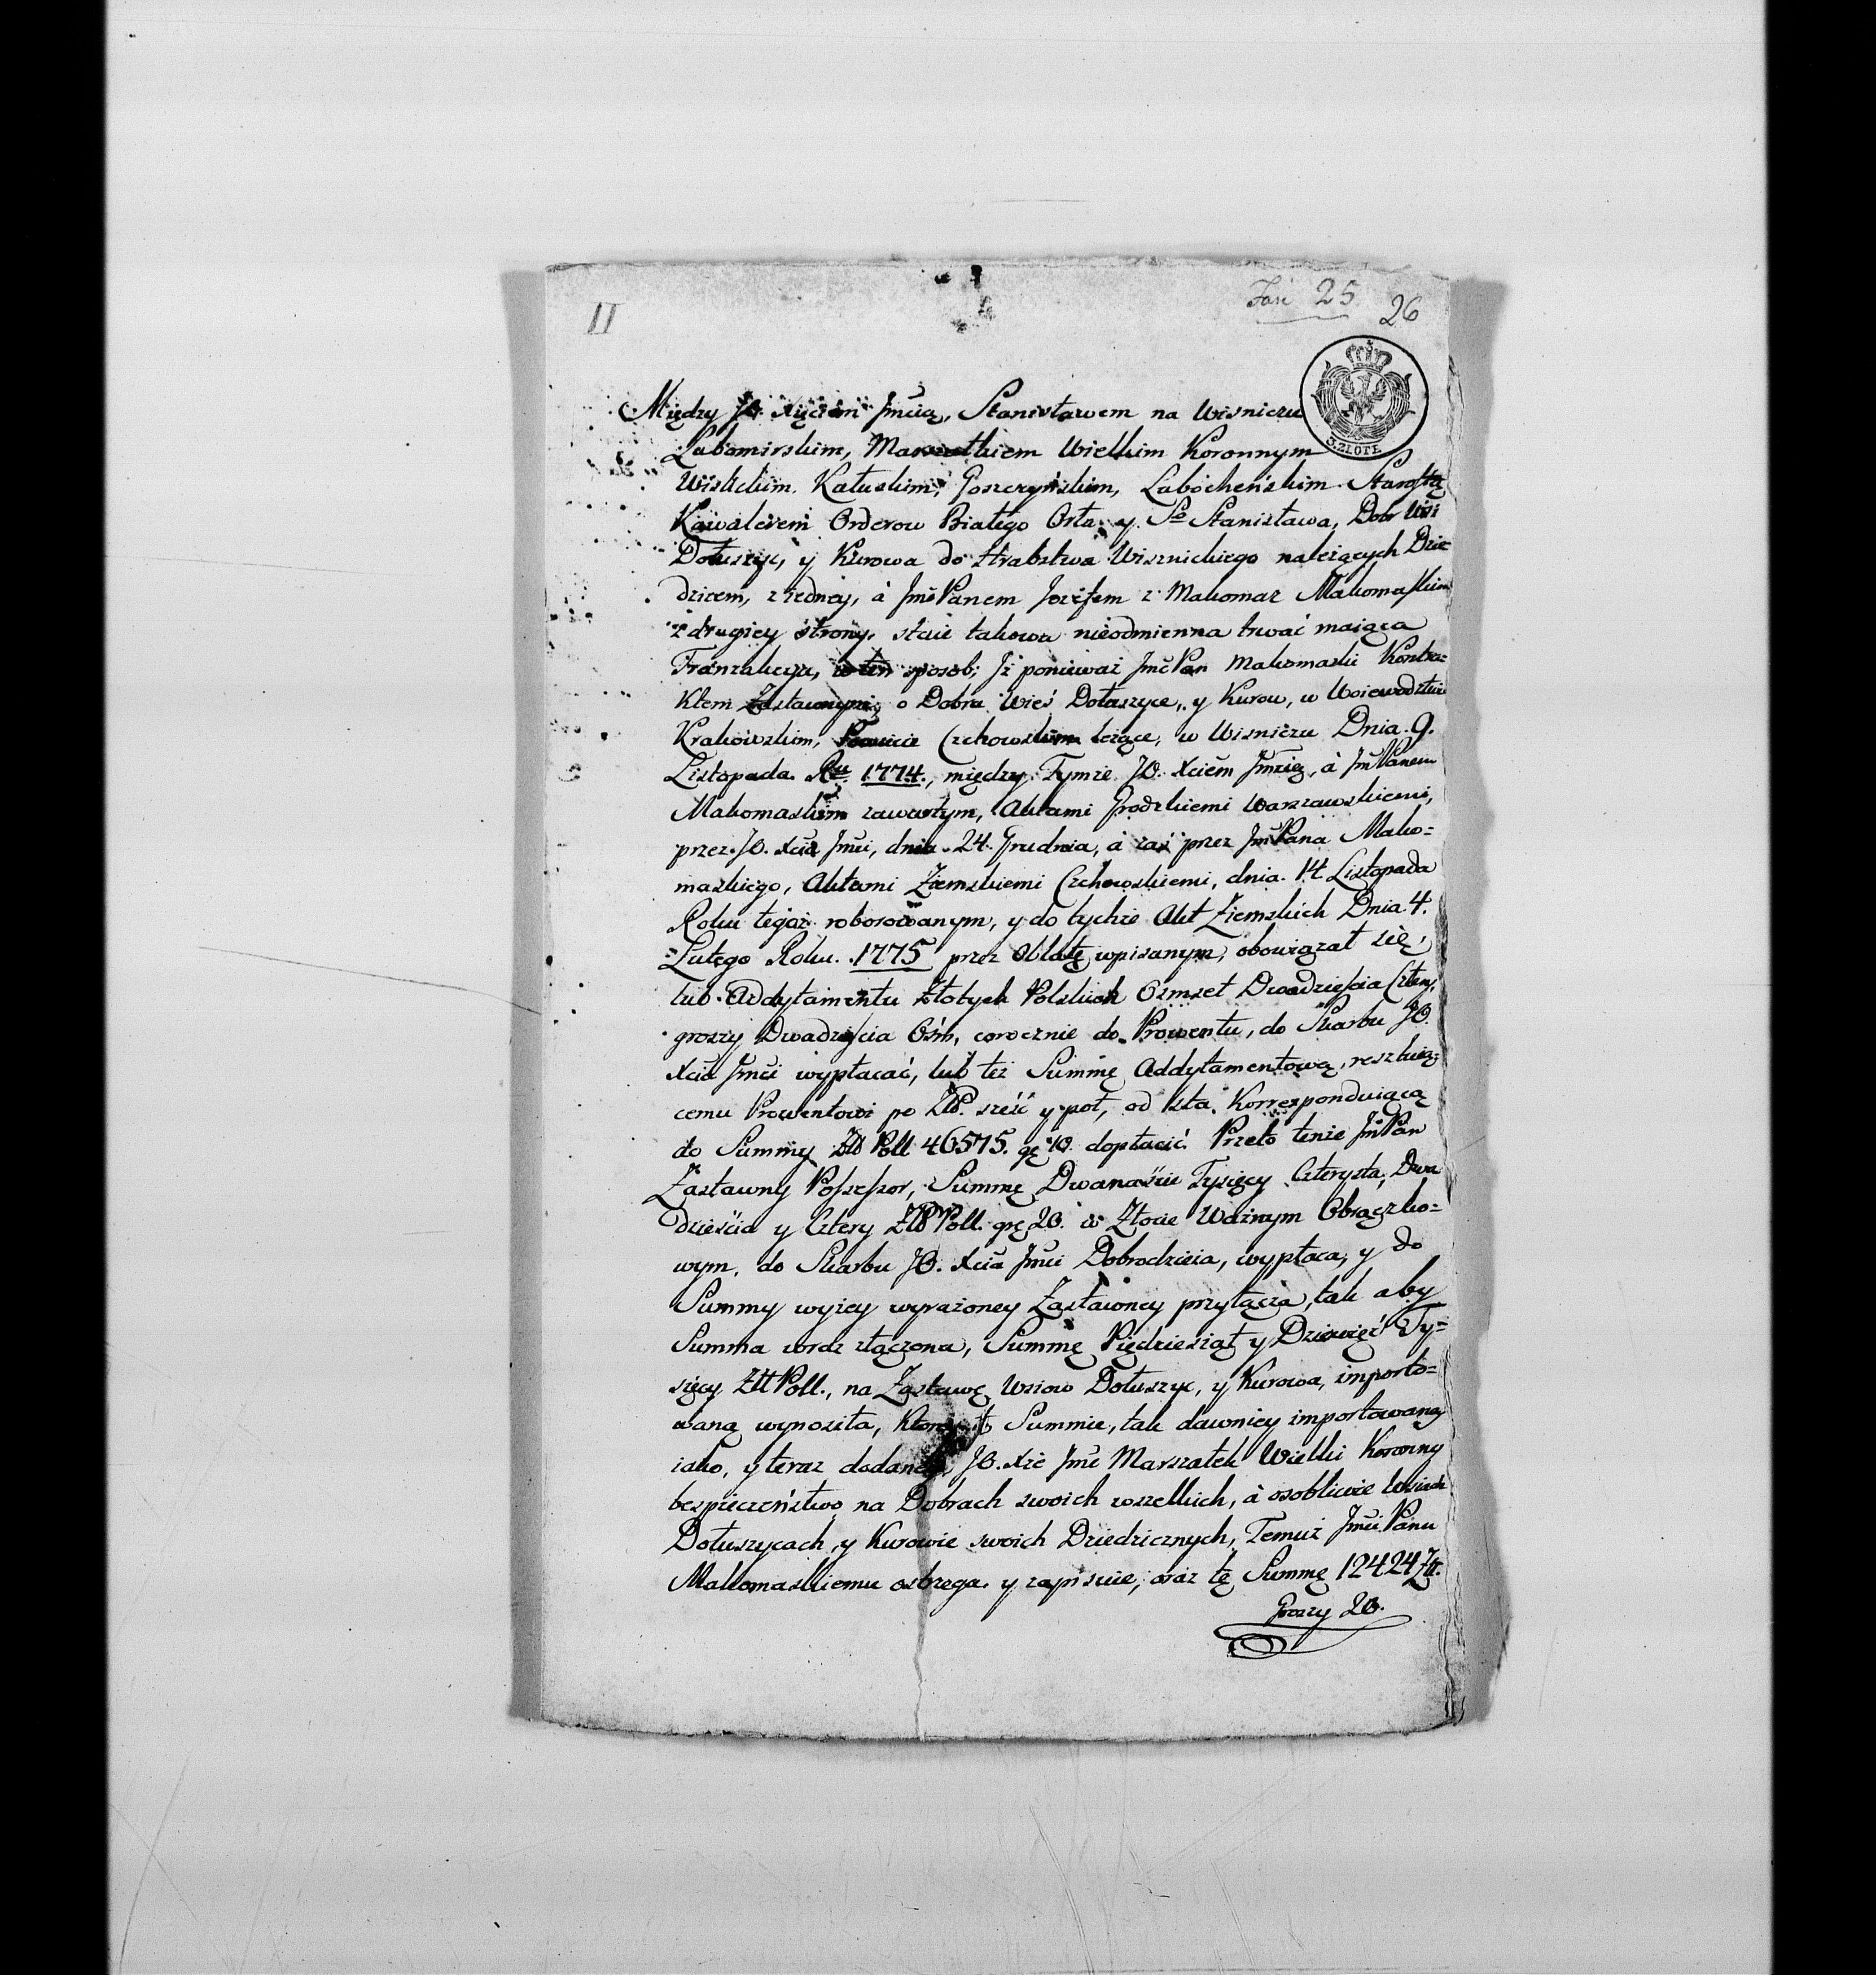 II
Fasc 25 26
3. ZŁOTE
Między JO. Xięciem Jmcią, Stanisławem na Wisniczu
Lubomirskim, Marszałkiem Wielkim Koronnym
Wislickim, Kałuskim, Goszczyńskim, Lubocheńskim Starostą
Kawalerem Orderow Białego Orła y So Stanisława, Dobr Wsi
Dołuszyc, y Kurowa do Hrabstwa Wisznickiego należących Dzie-
dzicem, z iedney, à JmćPanem Jozefem z Makomaz Makomaskim
z drugiey strony, staie takowa nieodmienna trwać maiąca
Tranzakcya, w ten sposob; Jż ponieważ JmćPan Makomaski Kontra=
ktem Zastawnym, o Dobra Wieś Dołuszyce, y Kurow, w Woiewodztwie
Krakowskim, Powiecie Czchowskim leżące, w Wisniczu Dnia 9.
Listopada Ru 1774., między Tymże JO. Xciem Jmcią, à JmPanem
Makomaskim zawartym, Aktami Grodzkiemi Warszawskiemi,
przez JO. Xcia Jmci, dnia 24. Grudnia, à zaś przez JmPana Mako=
maskiego, Aktami Ziemskiemi Czchowskiemi, dnia 14 Listopada
Roku tegoż roborowanym, y do tychże Akt Ziemskich Dnia 4.
Lutego Roku 1775 przez Oblatę wpisanym, obowiązał się,
lub Addytamentu Złotych Polskich Osmset Dwadzieścia Cztery,
groszy Dwadzieścia Ośm, corocznie do Prowentu, do Skarbu JO.
Xcia Jmci wypłacać, lub też Summę Addytamentową, reszkuią=
cemu Prowentowi po ZłP. sześć y poł, od sta, Korrespondującą
do Summy Zł Poll 46575. gr 10. dopłacić. Przeto tenże JmPan
Zastawny Possessor, Summę Dwanaście Tysięcy Czterysta, Dwa
dzieścia y Cztery Zł Poll. gr 20. w Złocie Ważnym Obrączko=
wym, do Skarbu JO. Xcia Jmci Dobrodzieia, wypłaca, y do
Summy wyżey wyrażoney Zastawney przyłącza, tak aby
Summa wraz złączona, Summę Pięćdziesiąt y Dziewięć Ty=
sięcy Złt Poll., na Zastawę Wsiow Dołuszyc, y Kurowa, importo=
waną wynosiła, Ktorey to Summie, tak dawniey importowaney
iako, y teraz dodaney, JO. Xże Jmć Marszałek Wielki Koronny
bespieczeństwo na Dobrach swoich wszelkich, à osobliwie Wsiach
Dołuszycach, y Kurowie swoich Dziedzicznych, Temuż Jmći Panu
Makomaskiemu ostrzega y zapisuie, oraz tę Summę 12424 Złt.
Groszy 20.